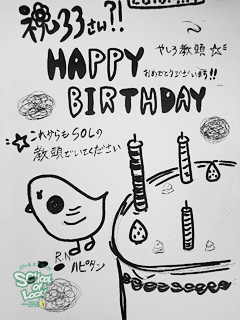 祝33さい?!
HAPPY
やしろ教頭☆
おめでとうございます!!
BIRTHDAY
☆これからもSOLの
教頭でいてください
R.N
ハピタン
SCHOOL OF LOCK!